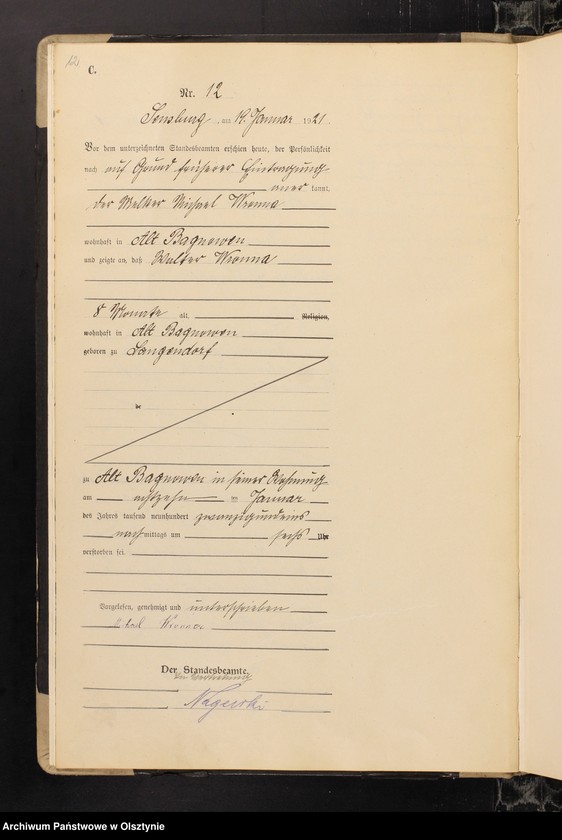 C.
Nr. 12
Sensburg, am 19. Januar 1921.
Vor dem unterzeichneten Standesbeamten erschien heute, der Persönlichkeit
nach auf Grund früherer Eintragung
anerkannt,
der Melker Michael Wronna
wohnhaft in Alt Bagnowen
und zeigte an, daß Walter Wronna
8 Monate alt, Religion,
wohnhaft in Alt Bagnowen
geboren zu Langendorf
zu Alt Bagnowen in seiner Wohnung
am achtzehn im Januar
des Jahres tausend neunhundert zwanzigundeins
nachmittags um sechs Uhr
verstorben sei.
Vorgelesen, genehmigt und unterschrieben
Wronna
Der Standesbeamte.
In Vertretung
Nagerski
Archiwum Państwowe w Olsztynie